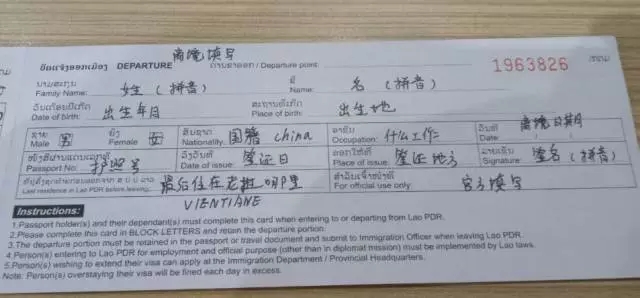 离境填写
ບັດແຈ້ງອອກເມືອງ DEPARTURE ດ່ານຂາອອກ / Departure point: 1963826
ນາມສະກຸນ Family Name: 姓（拼音） ຊື່ Name: 名（拼音）
ວັນເດືອນປີເກີດ Date of birth: 出生年月 ສະຖານທີ່ເກີດ Place of birth: 出生地
ຊາຍ Male 男 ຍິງ Female 女 ສັນຊາດ Nationality: 国籍 china ອາຊີບ Occupation: 什么工作 ວັນທີ 离境日期
Passport No: 护照号 ລົງວັນທີ Date of issue: 签证日 ອອກໃຫ້ທີ່ Place of issue: 签证地方 ລາຍເຊັນ Signature: 签名（拼音）
Last residence in Lao PDR before leaving: 最后住在老挝哪里 ສຳລັບເຈົ້າໜ້າທີ່ For official use only: 官方填写
VIENTIANE
Instructions:
1.Passport holder(s) and their dependant(s) must complete this card when entering to or departing from Lao PDR.
2.Please complete this card in BLOCK LETTERS and retain the departure portion.
3.The departure portion must be retained in the passport or travel document and submit to Immigration Officer when leaving Lao PDR.
4.Person(s) entering to Lao PDR for employment and official purpose (other than in diplomat mission) must be implemented by Lao laws.
5.Person(s) wishing to extend their visa can apply at the Immigration Department / Provincial Headquarters.
Note: Person(s) overstaying their visa will be fined each day in excess.